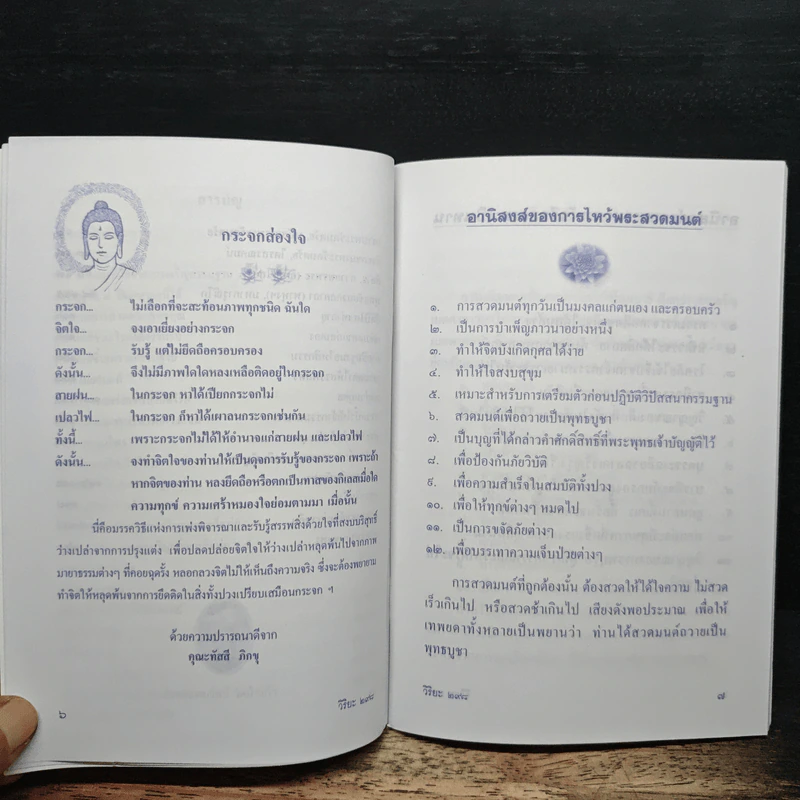 กระจกส่องใจ
กระจก... ไม่เลือกที่จะสะท้อนภาพทุกชนิด ฉันใด
จิตใจ... จงเอาเยี่ยงอย่างกระจก
กระจก... รับรู้ แต่ไม่ยึดถือครอบครอง
ดังนั้น... จึงไม่มีภาพใดใดหลงเหลือติดอยู่ในกระจก
สายฝน... ในกระจก หาได้เปียกกระจกไม่
เปลวไฟ... ในกระจก ก็หาได้เผาลนกระจกเช่นกัน
ทั้งนี้... เพราะกระจกไม่ได้ให้อำนาจแก่สายฝน และเปลวไฟ
ดังนั้น... จงทำจิตใจของท่านให้เป็นดุจการรับรู้ของกระจก เพราะถ้า
หากจิตของท่าน หลงยึดถือหรือตกเป็นทาสของกิเลสเมื่อใด
ความทุกข์ ความเศร้าหมองใจย่อมตามมา เมื่อนั้น
นี่คือมรรควิธีแห่งการเพ่งพิจารณาและรับรู้สรรพสิ่งด้วยใจที่สงบบริสุทธิ์
ว่างเปล่าจากการปรุงแต่ง เพื่อปลดปล่อยจิตใจให้ว่างเปล่าหลุดพ้นไปจากภาพ
มายาธรรมต่างๆ ที่คอยฉุดรั้ง หลอกลวงจิตไม่ให้เห็นถึงความจริง ซึ่งจะต้องพยายาม
ทำจิตให้หลุดพ้นจากการยึดติดในสิ่งทั้งปวงเปรียบเสมือนกระจก ฯ
ด้วยความปรารถนาดีจาก
คุณะทัสสี ภิกขุ
๖ วิริยะ ๒๙๘
อานิสงส์ของการไหว้พระสวดมนต์
๑. การสวดมนต์ทุกวันเป็นมงคลแก่ตนเอง และครอบครัว
๒. เป็นการบำเพ็ญภาวนาอย่างหนึ่ง
๓. ทำให้จิตบังเกิดกุศลได้ง่าย
๔. ทำให้ใจสงบสุขุม
๕. เหมาะสำหรับการเตรียมตัวก่อนปฏิบัติวิปัสสนากรรมฐาน
๖. สวดมนต์เพื่อถวายเป็นพุทธบูชา
๗. เป็นบุญที่ได้กล่าวคำศักดิ์สิทธิ์ที่พระพุทธเจ้าบัญญัติไว้
๘. เพื่อป้องกันภัยวิบัติ
๙. เพื่อความสำเร็จในสมบัติทั้งปวง
๑๐. เพื่อให้ทุกข์ต่างๆ หมดไป
๑๑. เป็นการขจัดภัยต่างๆ
๑๒. เพื่อบรรเทาความเจ็บป่วยต่างๆ
การสวดมนต์ที่ถูกต้องนั้น ต้องสวดให้ได้ใจความ ไม่สวด
เร็วเกินไป หรือสวดช้าเกินไป เสียงดังพอประมาณ เพื่อให้
เทพยดาทั้งหลายเป็นพยานว่า ท่านได้สวดมนต์ถวายเป็น
พุทธบูชา
วิริยะ ๒๙๘ ๗